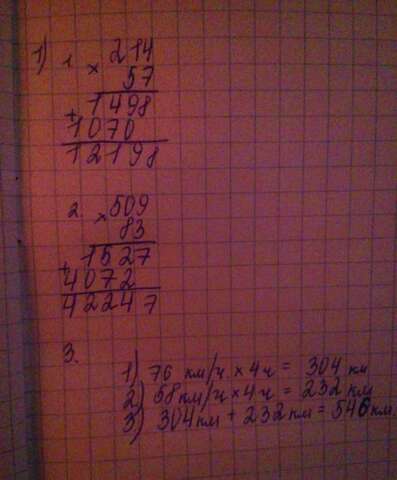 1) 1. 214
× 57
+ 1498
1070
12198
2. 509
× 83
+ 1527
4072
42247
3.
1) 76 км/ч × 4ч = 304 км
2) 58км/ч × 4ч = 232 км
3) 304км + 232км = 546км.